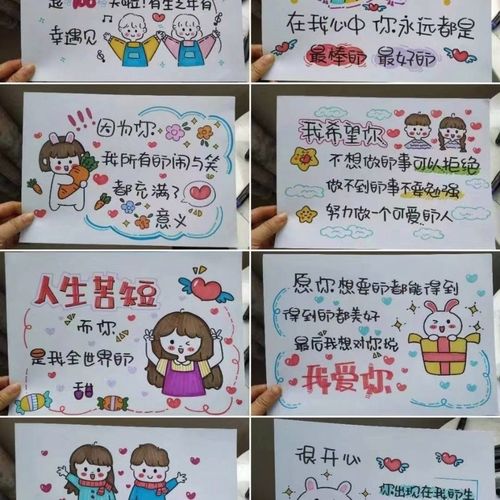 100天啦！有生之年有
幸遇见
在我心中 你永远都是
最棒的 最好的
因为你
我所有的闹与笑
都充满了
意义
我希望你
不想做的事可以拒绝
做不到的事不要勉强
努力做一个可爱的人
人生苦短
而你
是我全世界的
甜
愿你想要的都能得到
得到的都美好
最后我想对你说
我爱你
很开心
你出现在我的生